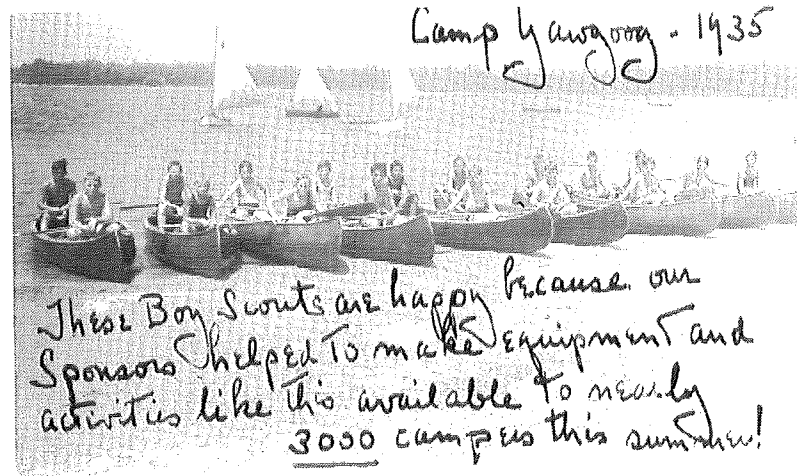 Camp Yawgoog - 1935
These Boy Scouts are happy because our
Sponsors helped to make equipment and
activities like this available to nearly
3000 campers this summer!